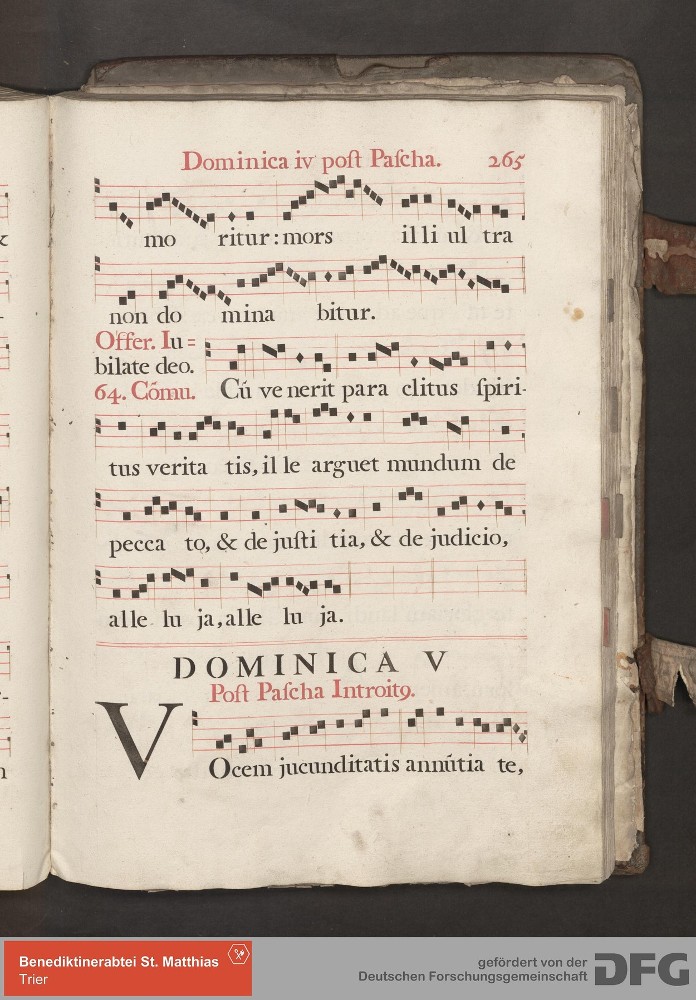 Dominica iv poſt Paſcha. 265
mo ritur: mors illi ul tra
non do mina bitur.
Offer. Iu=
bilate deo.
64. Cõmu. Cũ ve nerit para clitus ſpiri-
tus verita tis, il le arguet mundum de
pecca to, & de juſti tia, & de judicio,
alle lu ja, alle lu ja.
DOMINICA V
Poſt Paſcha Introitꝯ.
VOcem jucunditatis annũtia te,
Benediktinerabtei St. Matthias
Trier
gefördert von der
Deutschen Forschungsgemeinschaft
DFG